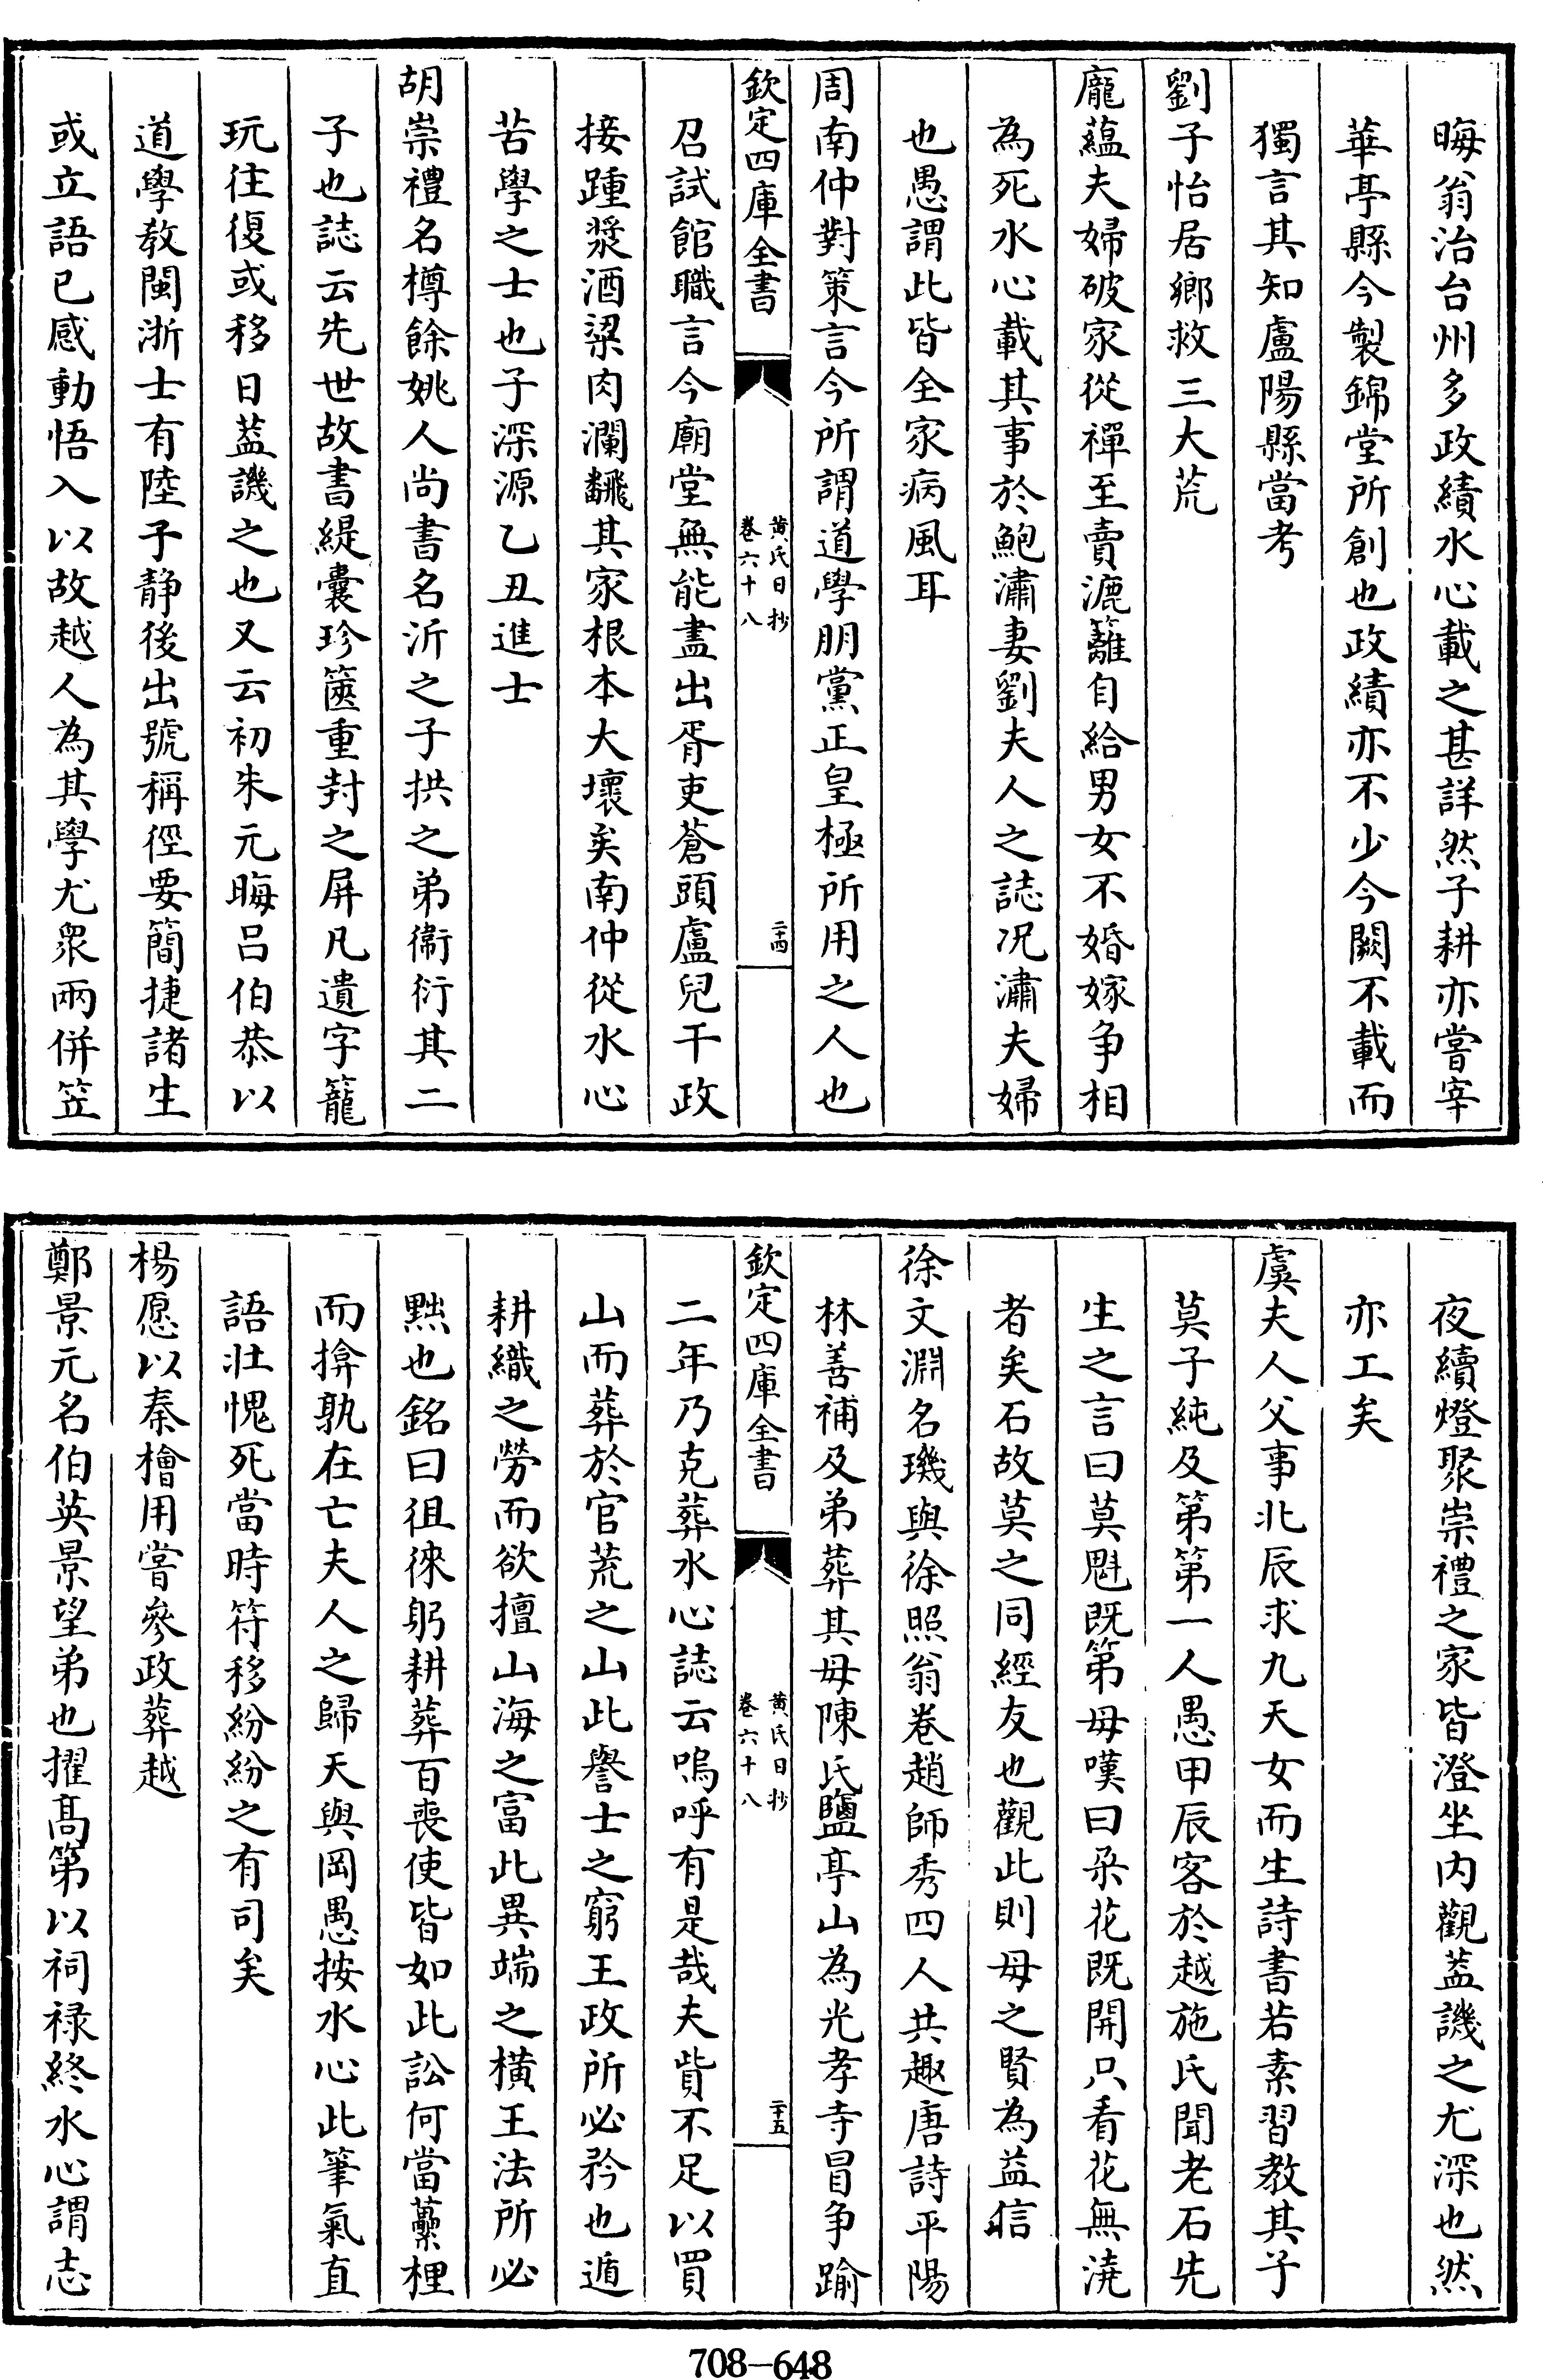 晦翁治台州多政績水心載之甚詳然子耕亦嘗宰
華亭縣今製錦堂所創也政績亦不少今闕不載而
獨言其知盧陽縣當考
劉子怡居鄉救三大荒
龐蘊夫婦破家從禪至賣漉籬自給男女不婚嫁争相
為死水心載其事於鮑潚妻劉夫人之誌况潚夫婦
也愚謂此皆全家病風耳
周南仲對策言今所謂道學朋黨正皇極所用之人也
欽定四庫全書
黄氏日抄
卷六十八
二十四
召試館職言今廟堂無能盡出胥吏蒼頭盧兒干政
接踵漿酒粱肉瀾飜其家根本大壞矣南仲從水心
苦學之士也子深源乙丑進士
胡崇禮名樽餘姚人尚書名沂之子拱之弟衞衍其二
子也誌云先世故書緹囊珍篋重封之屏凡遺字籠
玩往復或移日葢譏之也又云初朱元晦吕伯恭以
道學教閩浙士有陸子静後出號稱徑要簡捷諸生
或立語已感動悟入以故越人為其學尤衆兩併笠
夜續燈聚崇禮之家皆澄坐内觀葢譏之尤深也然
亦工矣
虞夫人父事北辰求九天女而生詩書若素習教其子
莫子純及第第一人愚甲辰客於越施氏聞老石先
生之言曰莫魁既第母嘆曰朶花既開只看花無澆
者矣石故莫之同經友也觀此則母之賢為益信
徐文淵名璣與徐照翁卷趙師秀四人共趣唐詩平陽
林善補及弟葬其母陳氏鹽亭山為光孝寺冒争踰
欽定四庫全書
黄氏日抄
卷六十八
二十五
二年乃克葬水心誌云嗚呼有是哉夫貲不足以買
山而葬於官荒之山此譽士之窮王政所必矜也遁
耕織之勞而欲擅山海之富此異端之横王法所必
黜也銘曰徂徠躬耕葬百喪使皆如此訟何當虆梩
而揜孰在亡夫人之歸天與岡愚按水心此筆氣直
語壯愧死當時符移紛紛之有司矣
楊愿以秦檜用嘗參政葬越
鄭景元名伯英景望弟也擢髙第以祠禄終水心謂志
708-648